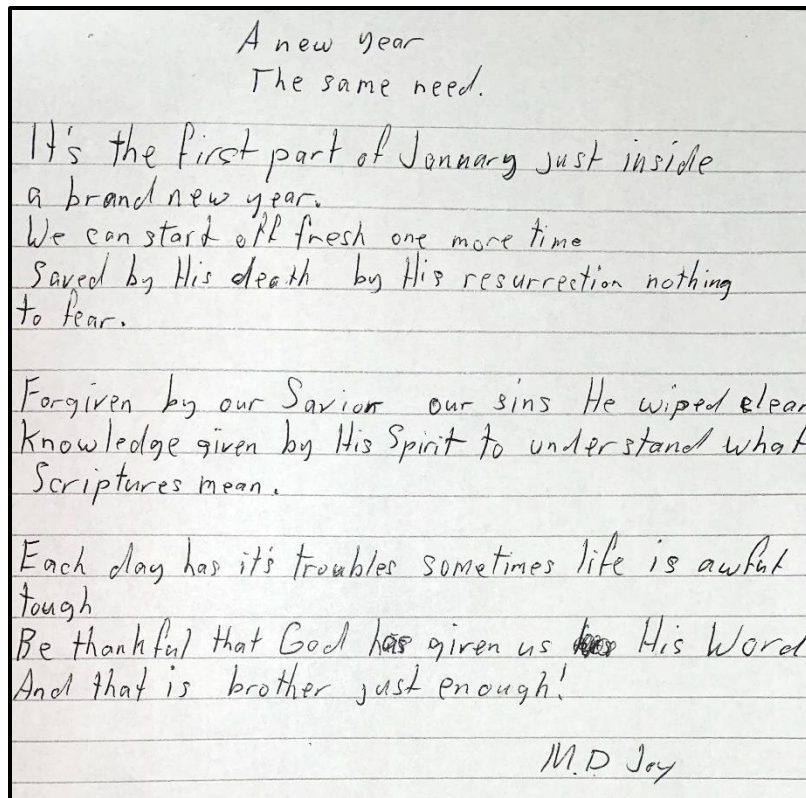 A new year
The same need.
It's the first part of January just inside
a brand new year.
We can start off fresh one more time
Saved by His death by His resurrection nothing
to fear.
Forgiven by our Savior our sins He wiped clean
Knowledge given by His Spirit to understand what
Scriptures mean.
Each day has it's troubles sometimes life is awful
tough
Be thankful that God has given us His Word
And that is brother just enough!
M.D Joy